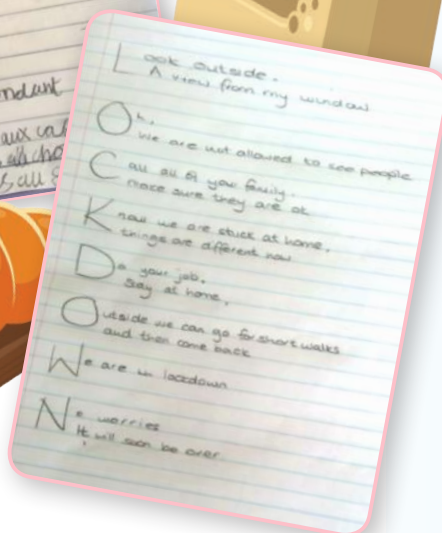 ndant
aux ca
Look outside.
A view from my window
Oh,
We are not allowed to see people
Call all of your family.
make sure they are ok
Know we are stuck at home,
things are different now
Do your job,
Stay at home,
Outside we can go for short walks
and then come back
We are in lockdown
No worries
It will soon be over